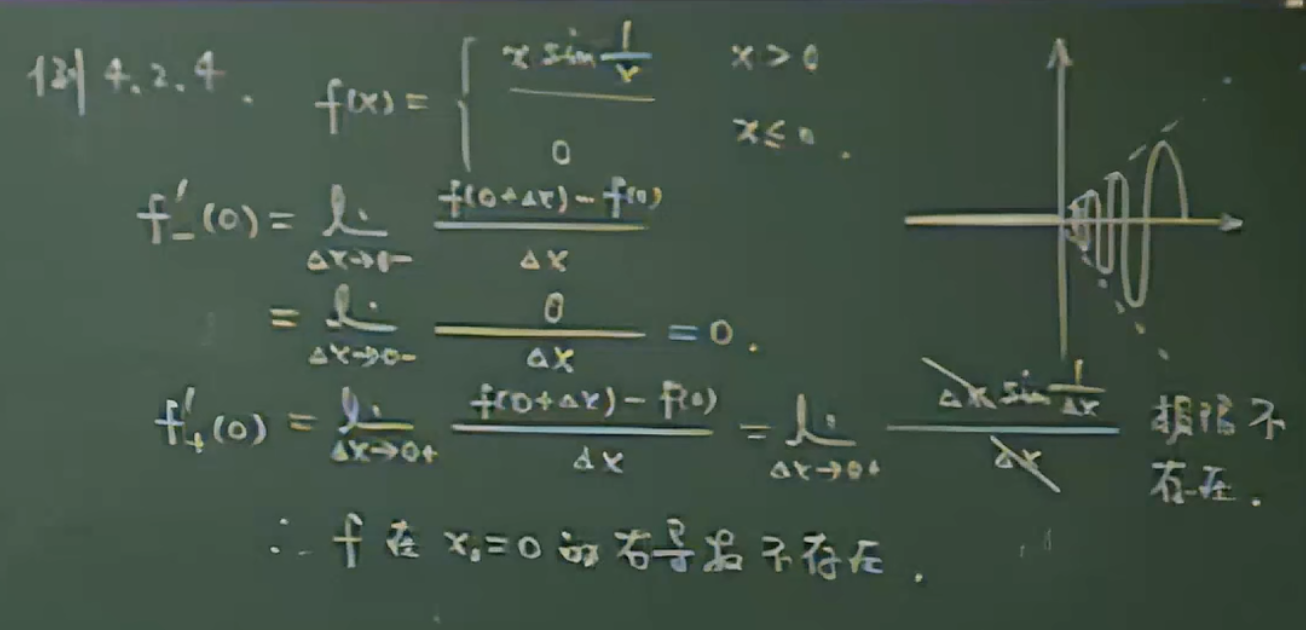 例 4.2.4. f(x) = { x sin 1/x x > 0
0 x ≤ 0.
f'₋(0) = lim Δx→0- (f(0+Δx) - f(0))/Δx
= lim Δx→0- 0/Δx = 0.
f'₊(0) = lim Δx→0+ (f(0+Δx) - f(0))/Δx = lim Δx→0+ (Δx sin 1/Δx)/Δx 极限不
存在.
∴ f 在 x₀=0 的右导数不存在.